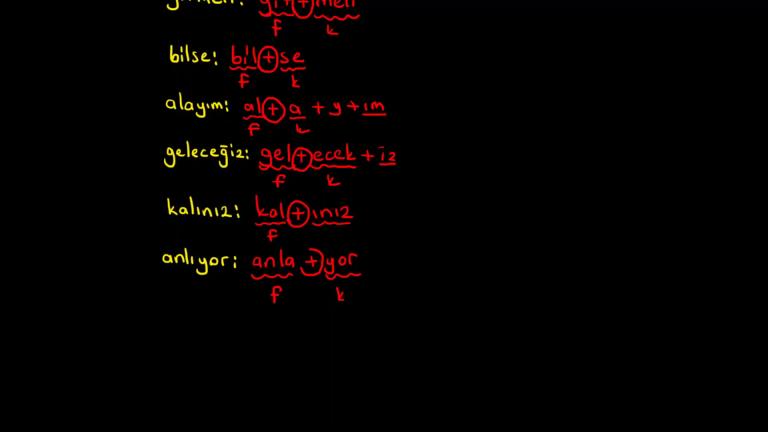 f k
bilse: bil + se
f k
alayım: al + a + y + ım
f k
geleceğiz: gel + ecek + iz
f k
kalınız: kal + ınız
f
anlıyor: anla + yor
f k